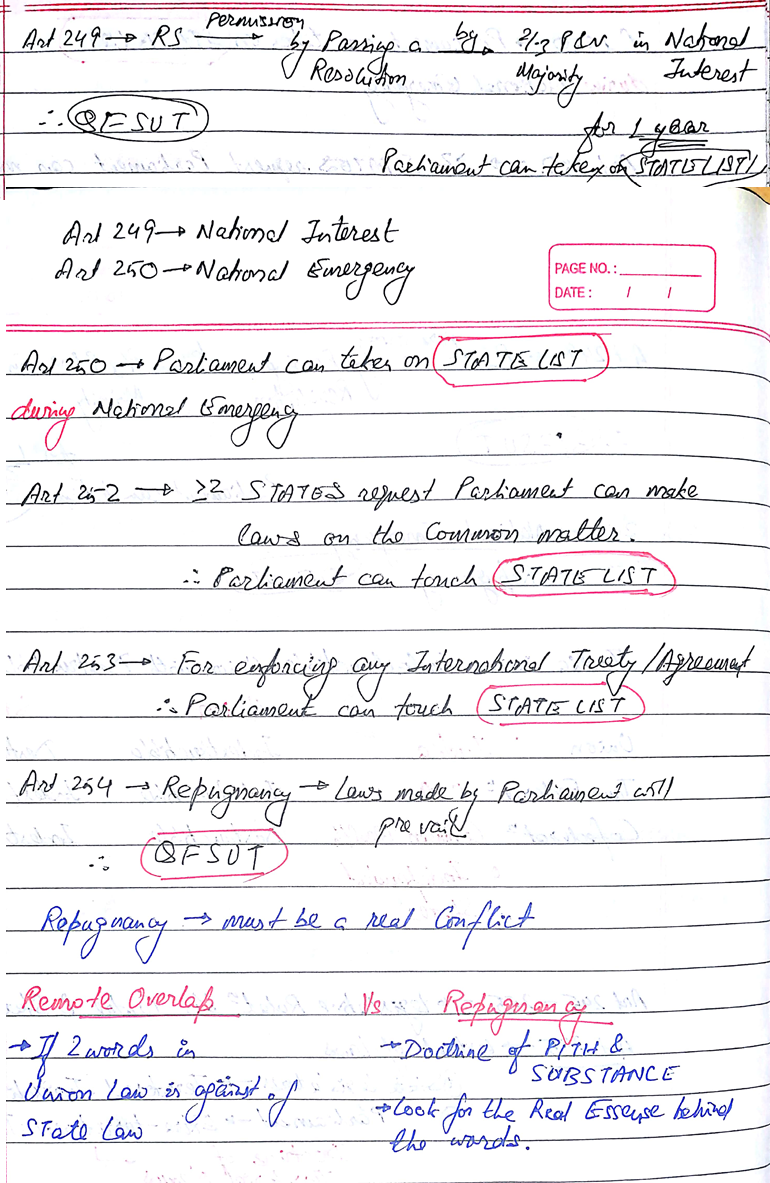 Art 249 → RS permission → by Passing a by 2/3 P&V in National
Resolution Majority Interest
∴ QFSUT for 1 year
Parliament can take on STATE LIST
Art 249 → National Interest
Art 250 → National Emergency
PAGE NO. :
DATE : / /
Art 250 → Parliament can take on STATE LIST
during National Emergency
Art 252 → ≥2 STATES request Parliament can make
laws on the Common matter.
∴ Parliament can touch STATE LIST
Art 253 → For enforcing any International Treaty/Agreement
∴ Parliament can touch STATE LIST
Art 254 → Repugnancy → Laws made by Parliament will
prevail
∴ QFSUT
Repugnancy → must be a real Conflict
Remote Overlap Vs Repugnancy
→ If 2 words in → Doctrine of PITH &
Union Law is against of SUBSTANCE
State Law → Look for the Real Essense behind
the words.